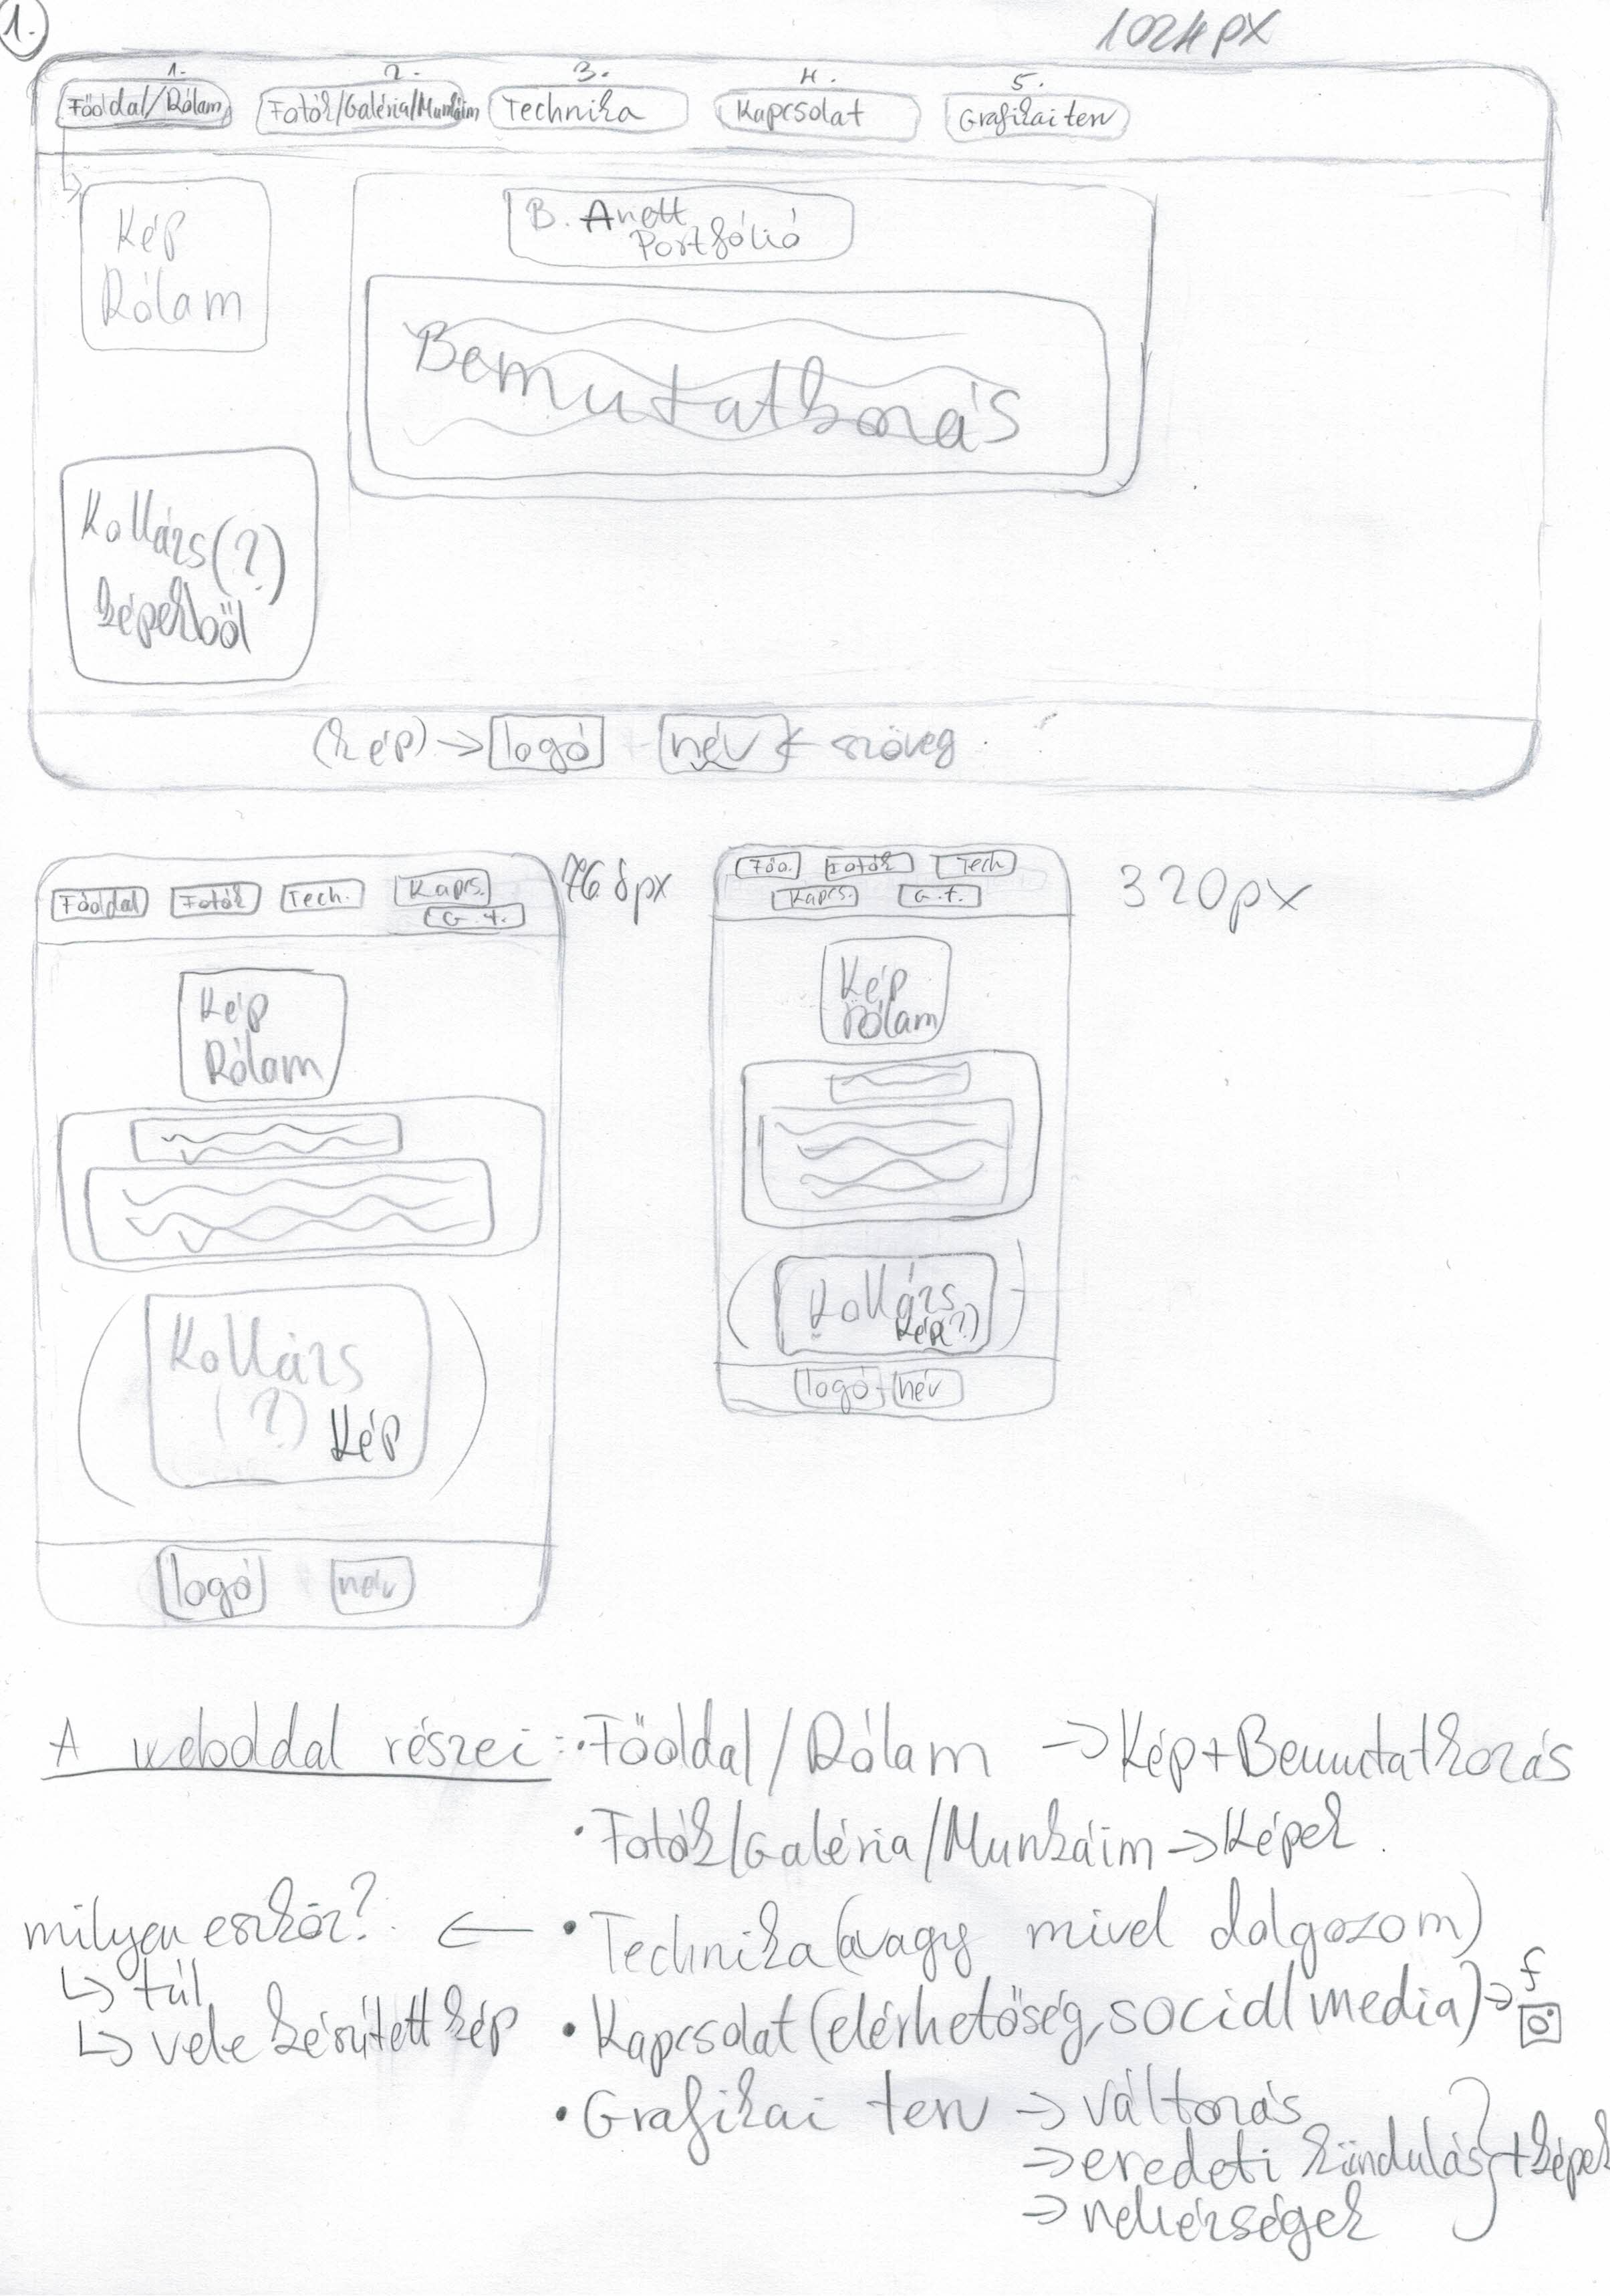 1.
1024px
1. 2. 3. 4. 5.
Főoldal/Rólam Fotók/Galéria/Munkáim Technika Kapcsolat Grafikai terv
Kép
Rólam
B. Anett
Portfólió
Bemutatkozás
Kollázs(?)
képekből
(kép)→ logó név ← szöveg
768px
Főoldal Fotók Tech. Kapcs.
G.t.
Kép
Rólam
Kollázs
(?) Kép
logó név
320px
Főo. Fotók Tech
Kapcs. G.t.
Kép
Rólam
Kollázs
Kép(?)
logó + név
A weboldal részei: • Főoldal / Rólam → Kép + Bemutatkozás
• Fotók/Galéria/Munkáim → Képek
milyen eszköz? ← • Technika (avagy mivel dolgozom)
↳ túl
↳ vele készített kép
• Kapcsolat (elérhetőség, social media) → f
• Grafikai terv → változás
→ eredeti kiindulás + képek
→ nehézségek